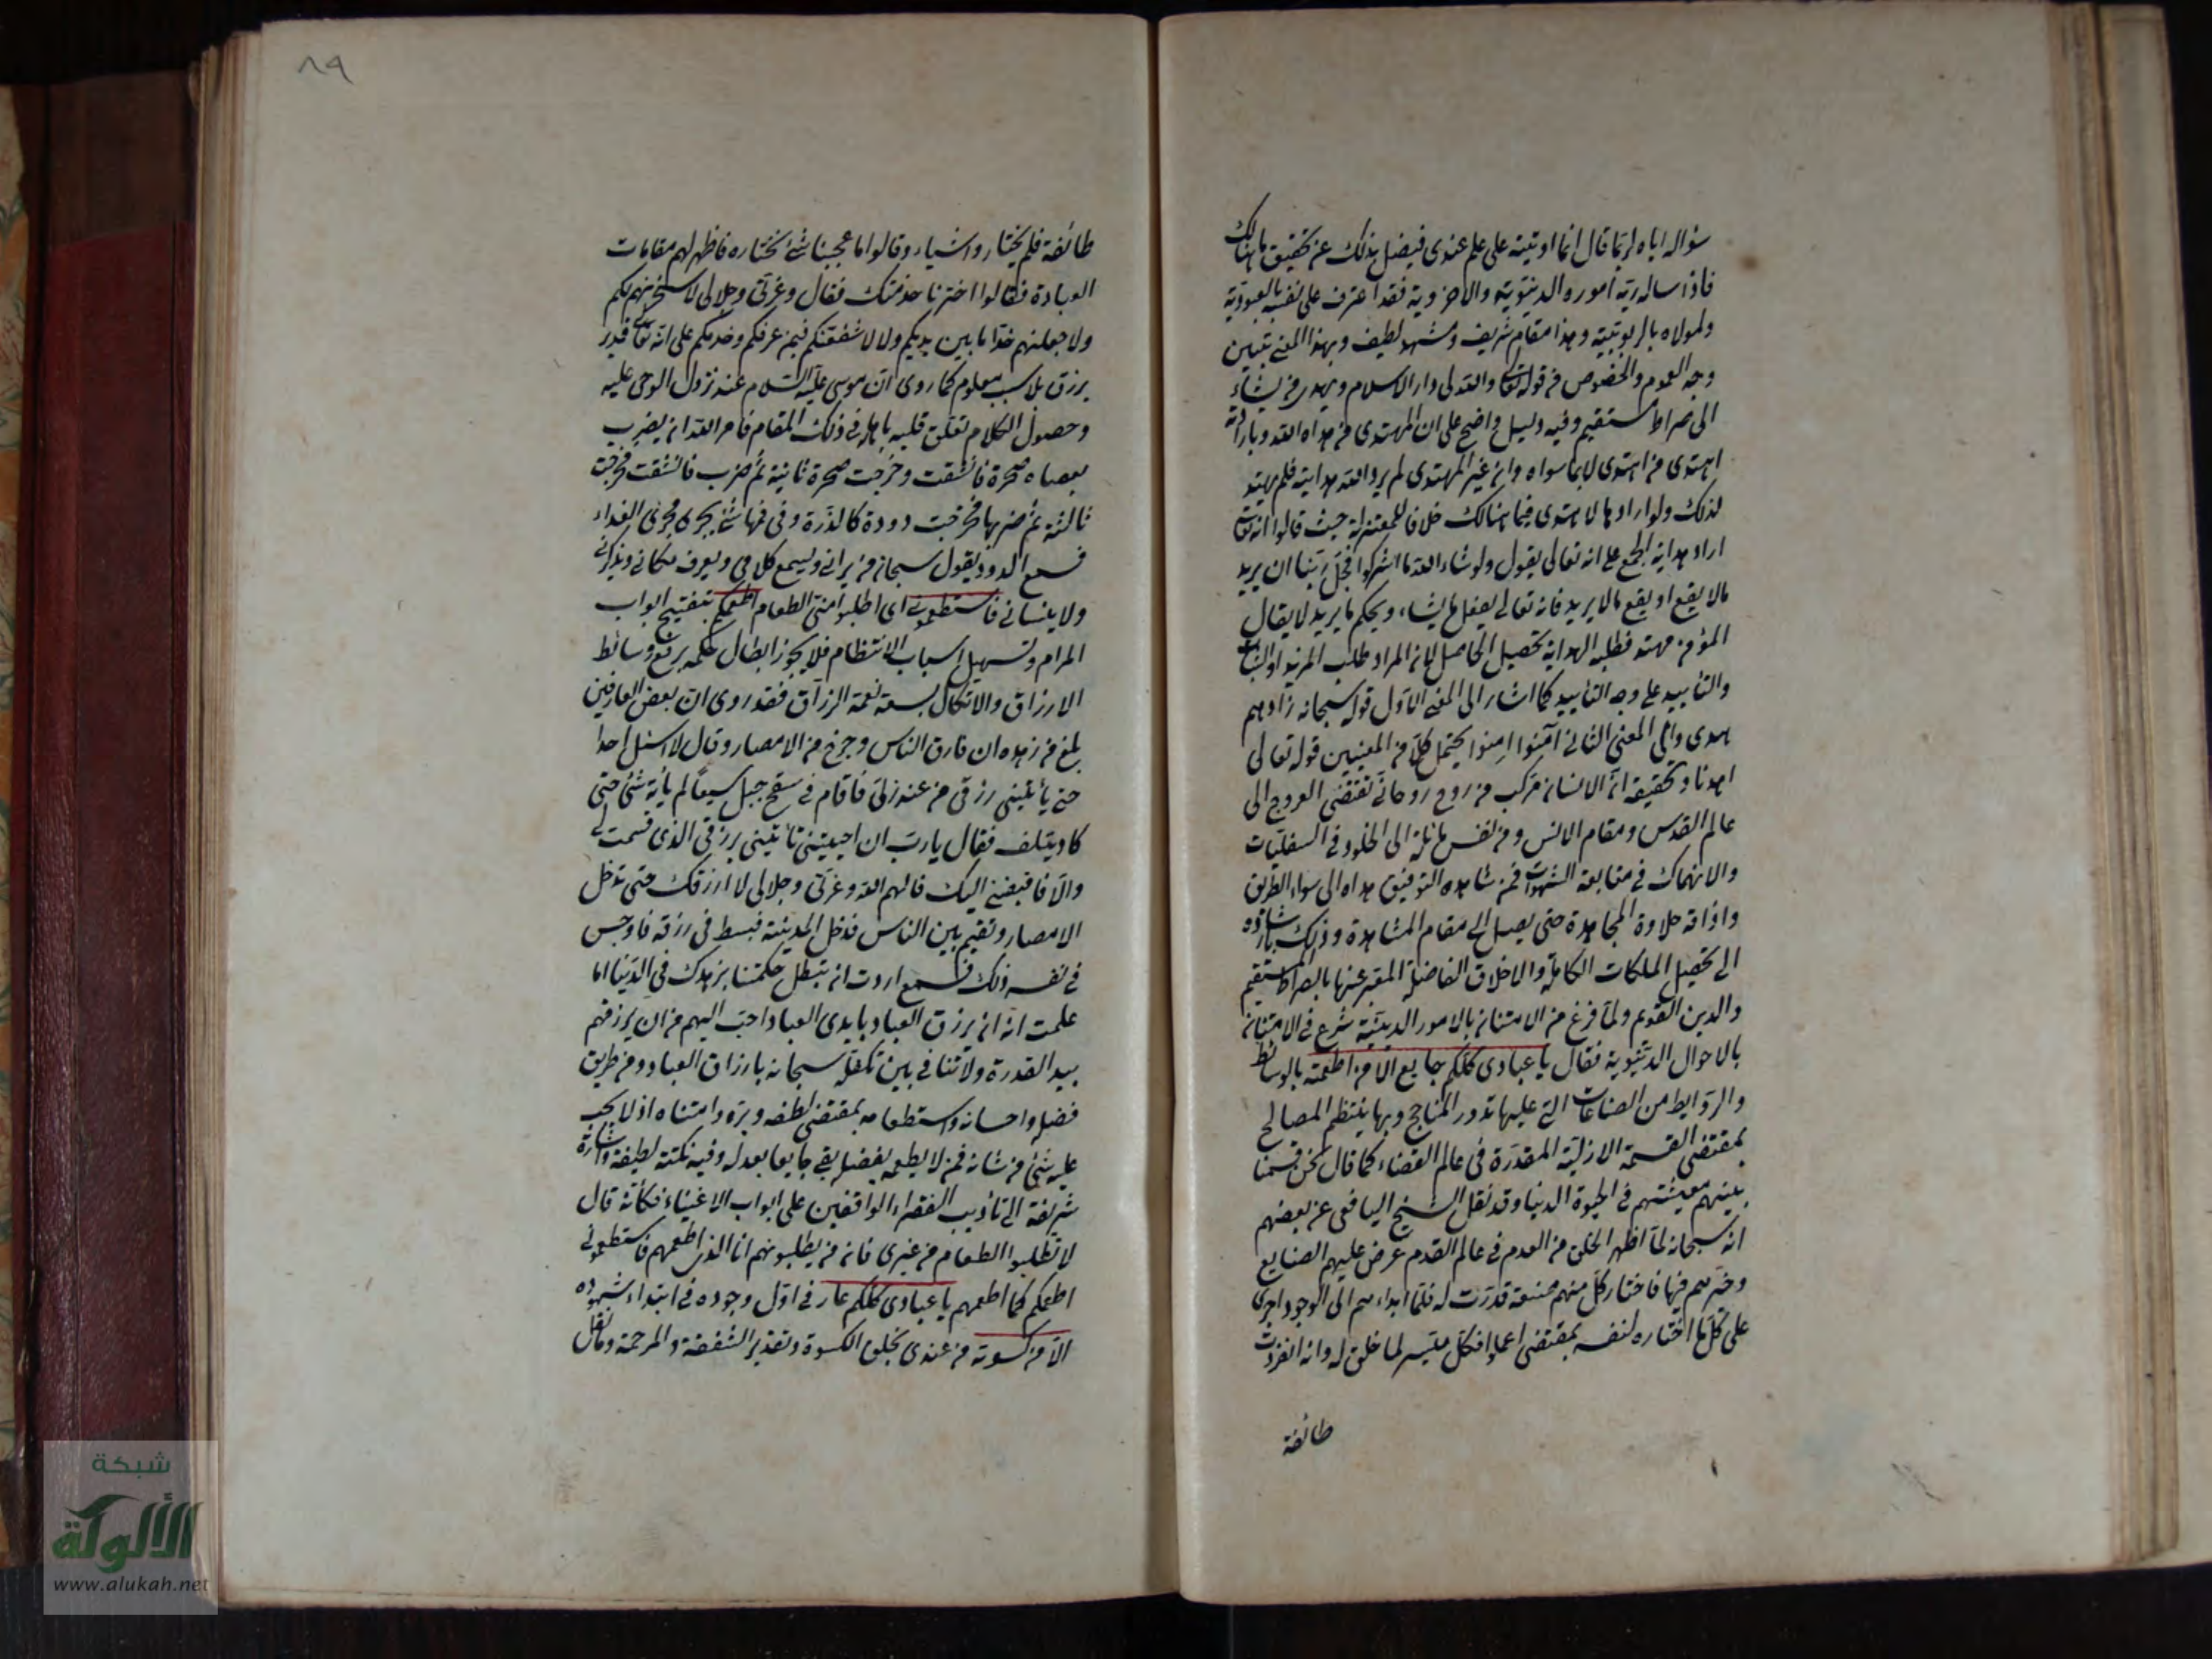 سؤاله اياه لربما قال انما اوتيته على علم عندي فيضل بذلك عن تحقيق ما هنالك
فاذا ساله ربه اموره الدنيوية والاخروية فقد اعترف على نفسه بالعبودية
ولمولاه بالربوبية وهذا مقام شريف ومشهد لطيف وبهذا المعنى تبين
وجه العموم والخصوص في قوله تعالى والله يدعو الى دار السلام ويهدي من يشاء
الى صراط مستقيم وفيه دليل واضح على ان المهتدي من هداه الله وبارادته
اهتدى من اهتدى لا بما سواه وان غير المهتدي لم يرد الله هدايته فلم يهتد
لذلك ولو ارادها لاهتدى فيما هنالك خلافا للمعتزلة حيث قالوا انه تعالى
اراد هداية الجمع على انه تعالى يقول ولو شاء الله ما اشركوا فجل ربنا ان يريد
مالا يقع او يقع مالا يريد فانه تعالى يفعل ما يشاء ويحكم ما يريد لا يقال
المؤمن مهتد فطلبه الهداية تحصيل الحاصل لان المراد طلب المزيد او الثبات
والتأبيد على وجه التأييد كما اشار الى المعنى الاول قوله سبحانه زادهم
هدى والى المعنى الثاني آمنوا امنوا يحتمل كلا من المعنيين قوله تعالى
اهدنا وتحقيقه ان الانسان مركب من روح روحاني تقتضي العروج الى
عالم القدس ومقام الانس ومن نفس مائلة الى الخلود في السفليات
والانهماك في متابعة الشهوات فمن شاهده التوفيق هداه الى سواء الطريق
واذاقه حلاوة المجاهدة حتى يصل الى مقام المشاهدة وذلك بارشاده
الى تحصيل الملكات الكاملة والاخلاق الفاضلة المعبر عنها بالصراط المستقيم
والدين القويم ولما فرغ من الامتنان بالامور الدينية شرع في الامتنان
بالاحوال الدنيوية فقال يا عبادي كلكم جايع الا من اطعمته بالوسائط
والروابط من الصناعات التي عليها تدور المناجح وبها ينتظم المصالح
بمقتضى القسمة الازلية المقدرة في عالم القضاء كما قال نحن قسمنا
بينهم معيشتهم في الحيوة الدنيا وقد نقل الشيخ اليافعي عن بعضهم
انه سبحانه لما اظهر الخلق من العدم في عالم القدم عرض عليهم الصنايع
وخيرهم فيها فاختار كل منهم صنعة قدرت له فلما ابداءهم الى الوجود اجرى
على كل ما اختاره لنفسه بمقتضى اعملوا فكل ميسر لما خلق له وانه انفردت
طائفة
٨٩
طائفة فلم يختاروا شياء وقالوا ما عجبنا شئ نختاره فاظهر لهم مقامات
العبادة فقالوا اخترنا خدمتك فقال وعزتي وجلالي لاسخرنهم لكم
ولاجعلنهم خداما بين يديكم ولا لاشفعنكم فيمن عرفكم وخدمكم على انه تعالى قدير
برزق بلا سبب معلوم كما روى ان موسى عليه السلام عند نزول الوحي عليه
وحصول الكلام تعلق قلبه باهله في ذلك المقام فامر الله ان يضرب
بعصاه صخرة فانشقت وخرجت صخرة ثانية ثم ضرب فانشقت فخرجت
ثالثة ثم ضربها فخرجت دودة كالذرة وفي فمها شئ يجري مجرى الغداء
فسمع الدود يقول سبحان من يراني ويسمع كلامي ويعرف مكاني ويذكرني
ولا ينساني فاستطعموني اي اطلبوا مني الطعام اطعمكم بتفتيح ابواب
المرام وتسهيل اسباب الانتظام فلا يجوز ابطال حكمه برفع وسائط
الارزاق والاتكال بسعة نعمة الرزاق فقد روى ان بعض العارفين
بلغ من زهده ان فارق الناس وخرج من الامصار وقال لا اسئل احدا
حتى يأتيني رزقي من عند ربي فاقام في سفح جبل سبعا لم يأته شئ حتى
كاد يتلف فقال يا رب ان احييتني تأتيني برزقي الذي قسمت لي
والا فاقبضني اليك فالهم الله وعزتي وجلالي لا ارزقك حتى تدخل
الامصار وتقيم بين الناس فدخل المدينة فبسط في رزقه فاوجس
في نفسه ذلك فسمع اردت ان تبطل حكمتنا بزهدك في الدنيا اما
علمت انه ان يرزق العباد بايدي العباد احب اليهم من ان يرزقهم
بيد القدرة ولا تنافي بين تكفله سبحانه بارزاق العباد ومن طريق
فضله واحسانه واستطعامه بمقتضى لطفه وبره وامتنانه اذ لا يجب
عليه شئ من شانه فمن لا يطعمه بفضله بقي جايعا بعدله وفيه نكتة لطيفة واشارة
شريفة الى تأديب الفقراء الواقفين على ابواب الاغنياء فكأنه قال
لا تطلبوا الطعام من غيري فانه من يطلبونهم انا الذي اطعمهم فاستطعموني
اطعمكم كما اطعمهم يا عبادي كلكم عار في اول وجوده في ابتداء شهوده
الا من كسوته من عندي بخلق الكسوة وتقدير الشفقة والمرحمة وقال تعالى
شبكة
الألوكة
www.alukah.net